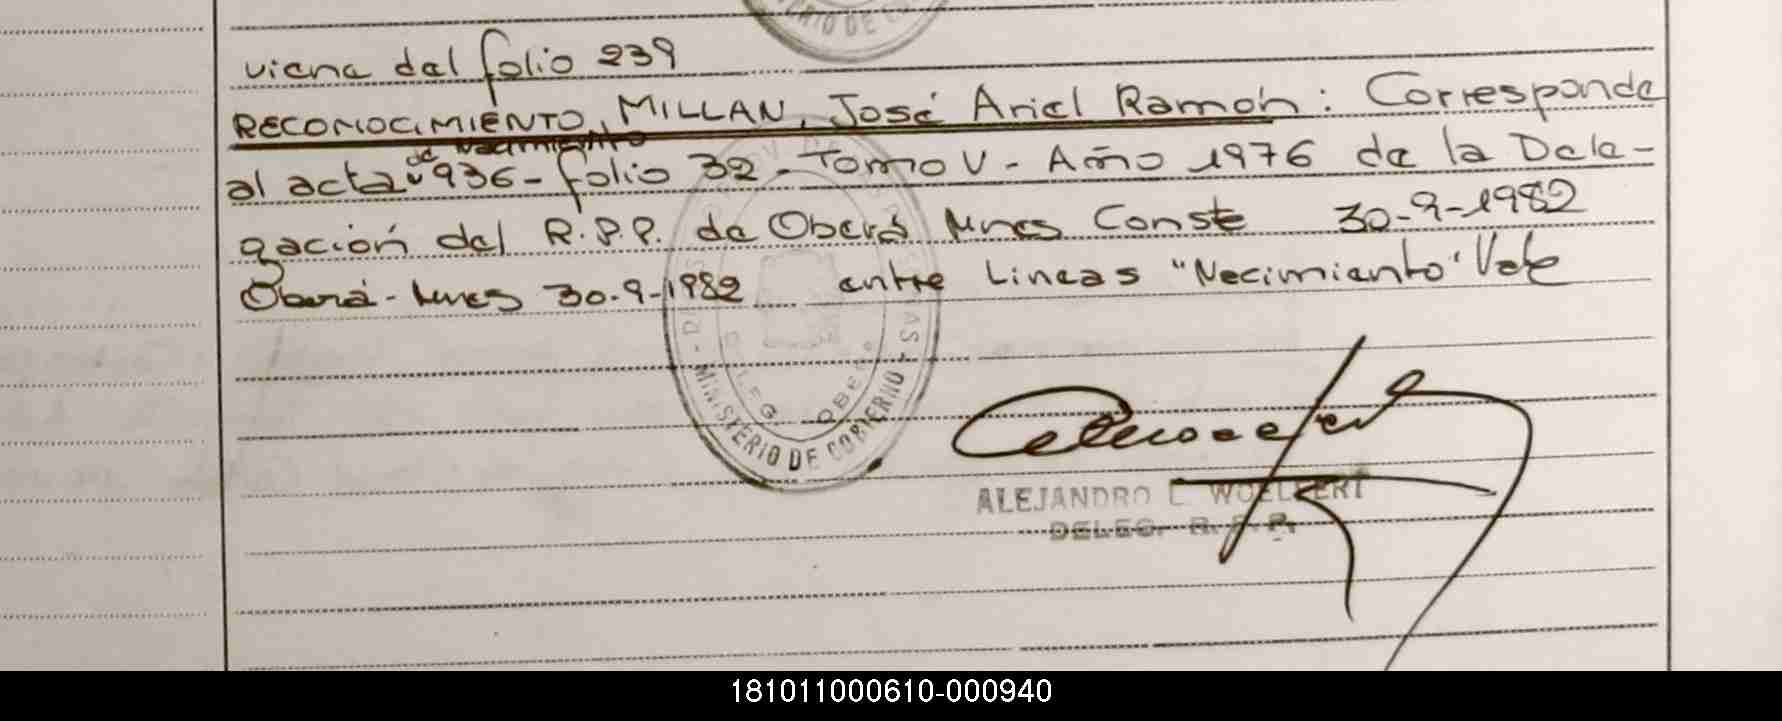 MINISTERIO DE GOBIERNO
viene del folio 239
RECONOCIMIENTO, MILLAN, José Ariel Ramón: Corresponde
de Nacimiento
al acta 936 - folio 32 - Tomo V - Año 1976 de la Dele-
gación del R.P.P. de Oberá Mnes Conste 30-9-1982
Oberá - Mnes 30-9-1982 entre Lineas "Necimiento" Vale
MINISTERIO DE GOBIERNO
DELEG. OBERA
ALEJANDRO L. WOELFERT
DELEG. R.P.P.
181011000610-000940